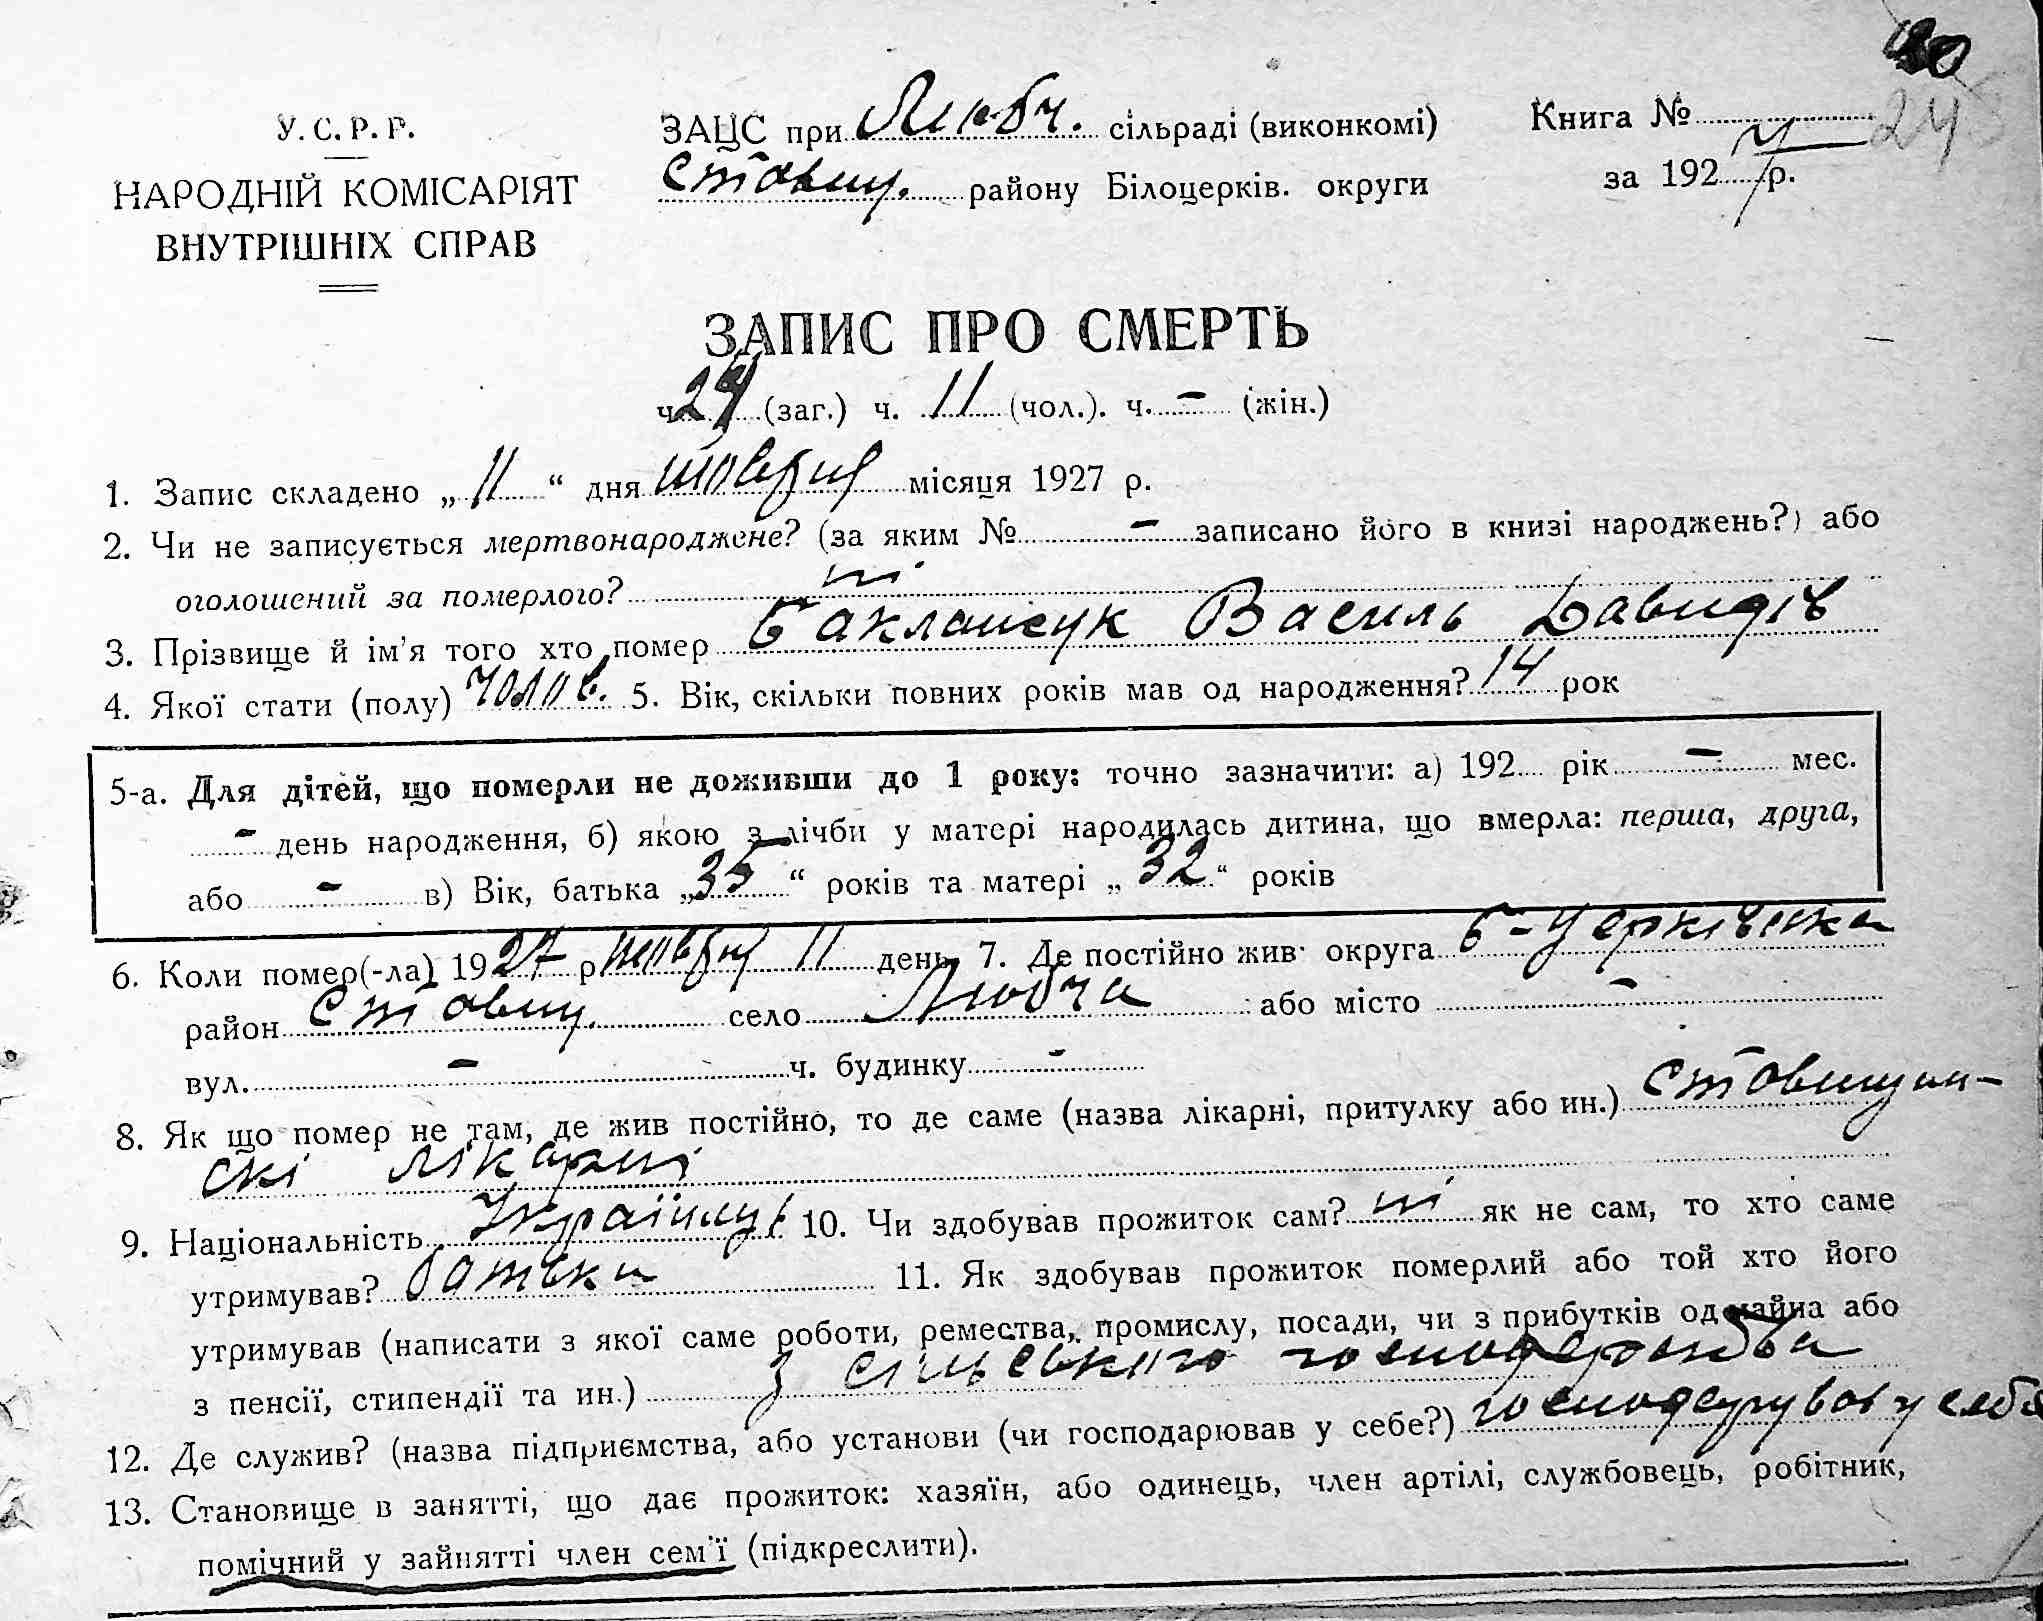 У.С.Р.Р.
НАРОДНІЙ КОМІСАРІЯТ
ВНУТРІШНІХ СПРАВ
ЗАЦС при Любч. сільраді (виконкомі)
Ставищ. району Білоцерків. округи
Книга №
за 1927 р.
248
ЗАПИС ПРО СМЕРТЬ
ч. 24 (заг.) ч. 11 (чол.). ч. – (жін.)
1. Запис складено „ 11 “ дня жовтня місяця 1927 р.
2. Чи не записується мертвонароджене? (за яким № – записано його в книзі народжень?) або
оголошений за померлого? ні
3. Прізвище й ім'я того хто помер Баклансук Василь Давидів
4. Якої стати (полу) чолов. 5. Вік, скільки повних років мав од народження? 14 рок
5-а. Для дітей, що померли не доживши до 1 року: точно зазначити: а) 192 рік – мес.
– день народження, б) якою з лічби у матері народилась дитина, що вмерла: перша, друга,
або – в) Вік, батька „ 35 “ років та матері „ 32 “ років
6. Коли помер(-ла) 1927 р жовтня 11 день 7. Де постійно жив округа Б-Церківська
район Ставищ. село Любча або місто –
вул. – ч. будинку –
8. Як що помер не там, де жив постійно, то де саме (назва лікарні, притулку або ин.) Ставищан-
скі лікарні
9. Національність Україн 10. Чи здобував прожиток сам? ні як не сам, то хто саме
утримував? батьки 11. Як здобував прожиток померлий або той хто його
утримував (написати з якої саме роботи, ремества, промислу, посади, чи з прибутків од майна або
з пенсії, стипендії та ин.) з сільського господарства
12. Де служив? (назва підприємства, або установи (чи господарював у себе?) господарував у себе
13. Становище в занятті, що дає прожиток: хазяїн, або одинець, член артілі, службовець, робітник,
помічний у зайнятті член сем'ї (підкреслити).